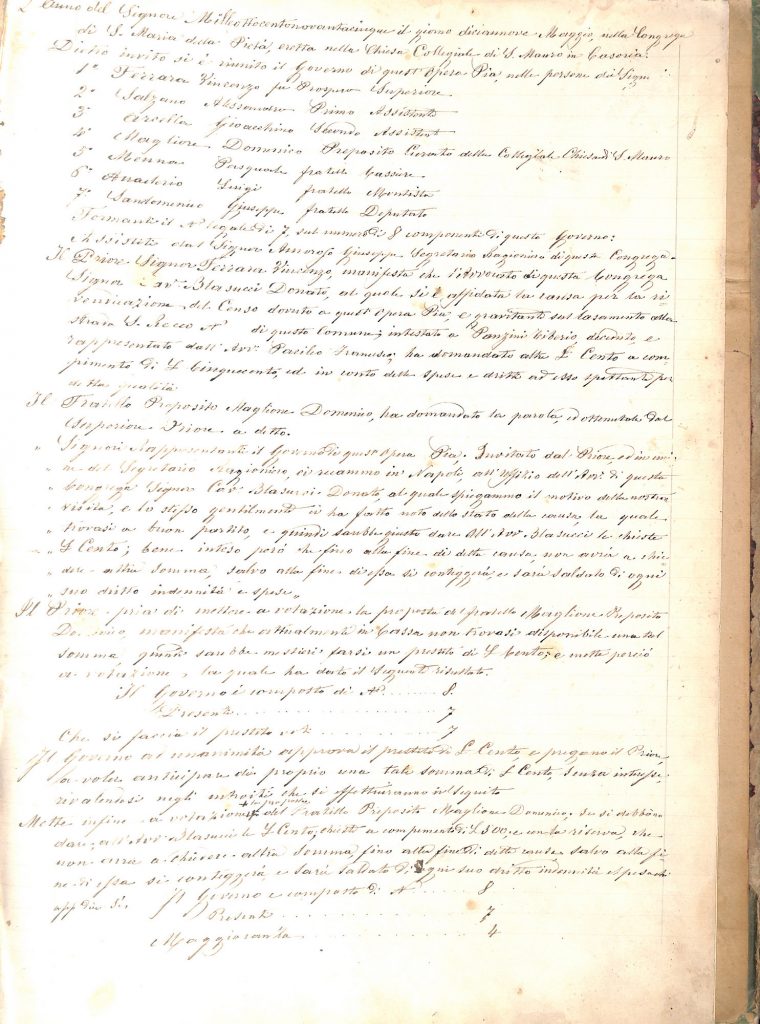 L'Anno del Signore Milleottocentonovantacinque il giorno diciannove Maggio, nella Congrega
di S. Maria della Pietà, eretta nella Chiesa Collegiale di S. Mauro in Casoria.
Dietro invito si è riunito il Governo di quest'Opera Pia, nelle persone dei Signi
1º Ferrara Vincenzo fu Prospero Superiore
2º Salzano Alessandro Primo Assistente
3º Gioacchino Secondo Assistente
4º Maglione Domenico Preposito Curato della Collegiale Chiesa di S. Mauro
5º Menna Pasquale fratello Cassiere
6º Luigi fratello Montista
7º Sandomenico Giuseppe fratello Deputato
Formanti il Nº legale di 7, sul numero di 8 componenti di questo Governo:
Assistiti dal Signor Amoroso Giuseppe Segretario Ragioniero di questa Congrega-
Il Priore Signor Ferrara Vincenzo, manifesta che l'Avvocato di questa Congrega
Signor Cav. Blasucci Donato, al quale si è affidata la causa per la ri-
vendicazione del Censo dovuto a quest'Opera Pia, e gravitante sul casamento alla
strada S. Rocco Nº di questo Comune; intestato a Panzini Tiberio, deceduto, e
rappresentato dall'Avv. Pasileo Francesco; ha domandato altre £ Cento a com-
pimento di £ Cinquecento, ed in conto delle spese e dritti ad esso spettanti per
detta qualità.
Il Fratello Preposito Maglione Domenico, ha domandato la parola, ed ottenutala dal
Superiore Priore a detto.
" Signori Rappresentanti il Governo di quest'Opera Pia. Invitato dal Priore, ed in uni-
" ne del Segretario Ragioniero, ci recammo in Napoli, all'Uffizio dell'Avv. di questa
" Congrega Signor Cav. Blasucci Donato, al quale spiegammo il motivo della nostra
" visita, e lo stesso gentilmente ci ha fatto noto dello stato della causa, la quale
" trovasi a buon partito, e quindi sarebbe giusto dare all'Avv. Blasucci le chieste
" £ Cento; bene inteso però che fino alla fine di detta causa, non avrà a chie-
" dere altra somma, salvo alla fine di essa si conteggerà, e sarà saldato di ogni
" suo dritto indennità e spese "
Il Priore pria di mettere a votazione la proposta del fratello Maglione Preposito
manifesta che attualmente in Cassa non trovasi disponibile una tal
somma quindi sarebbe mestieri farsi un prestito di £ Cento, e mette perciò
a votazione, la quale ha dato il seguente risultato.
Il Governo è composto di Nº ....... 8
Presenti ............ 7
Che si faccia il prestito voti ........ 7
Il Governo ad unanimità approva il prestito di £ Cento, e pregano il Priore
a volere anticipare di proprio una tale somma di £ Cento, senza interesse
rivalendosi negli introiti che si effettueranno in seguito
Mette infine a votazione + la proposta del Fratello Preposito Maglione Domenico, se si debbono
dare all'Avv. Blasucci le £ Cento, chieste a compimento di £ 500, e con la riserva, che
non avrà a chiedere altra somma fino alla fine di detta causa salvo alla fi-
ne di essa si conteggerà e sarà saldato di ogni suo dritto indennità e spese chi
Il Governo è composto di Nº 8
Presenti .......... 7
Maggioranza .......... 4